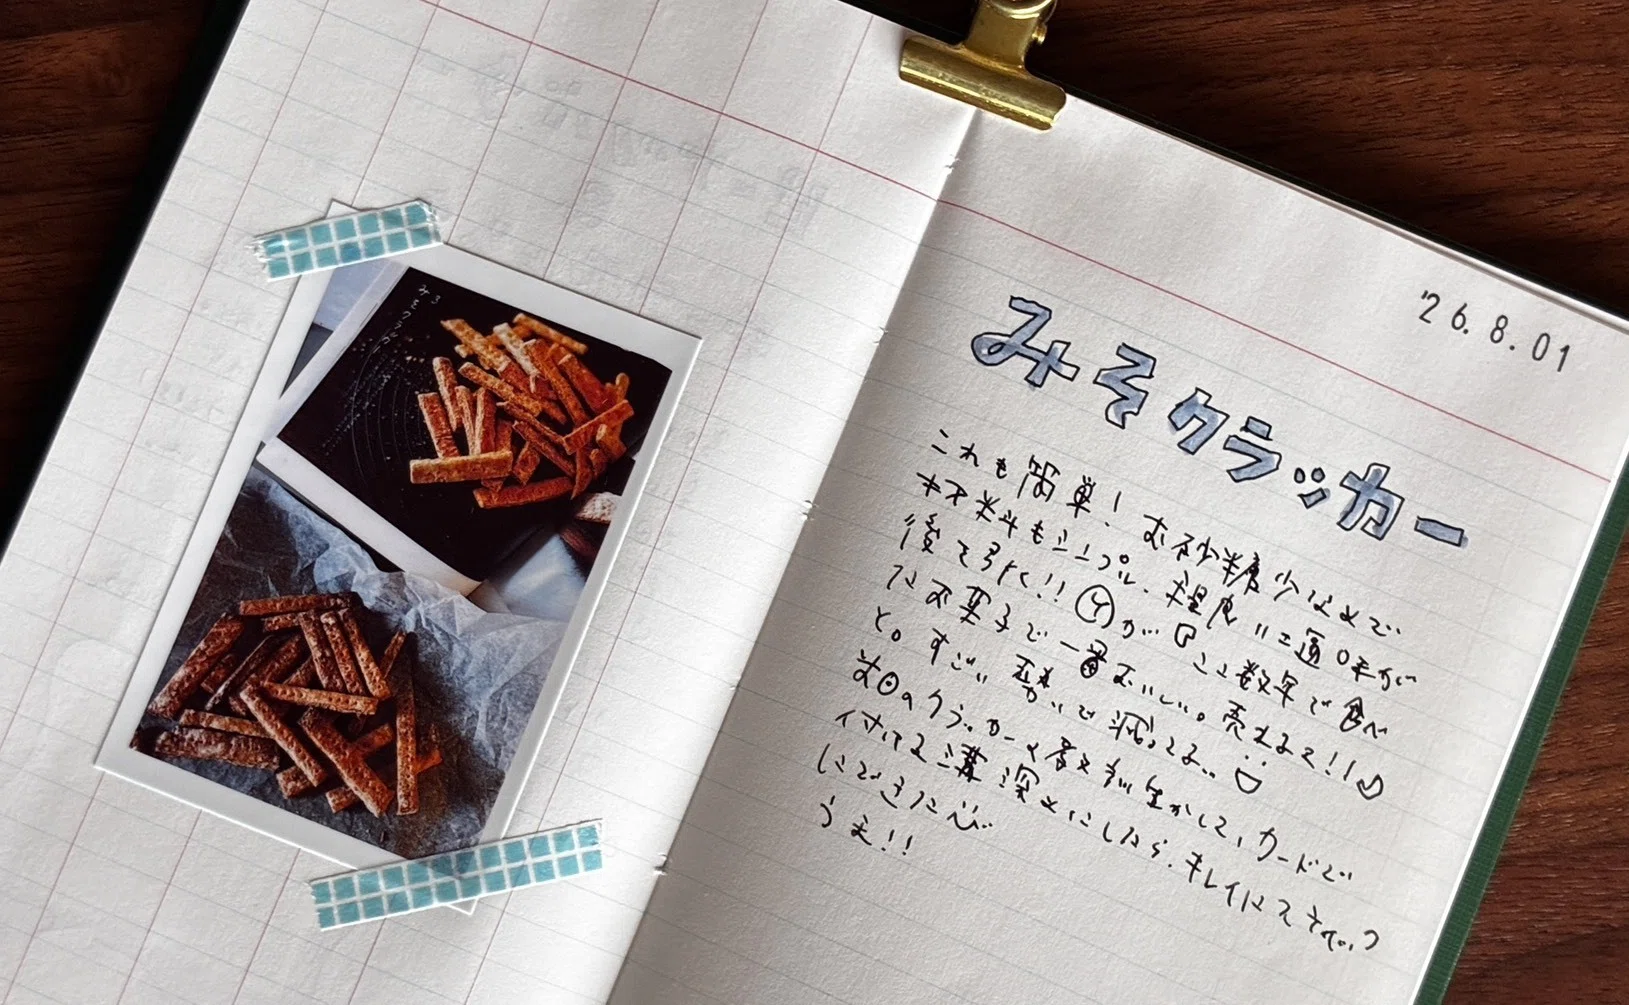 '26.8.01
みそクラッカー
これも簡単！お砂糖少なめで
材料もシンプル、程度に塩味が
後を引く!! Ⓨが「ここ数年で食べ
たお菓子で一番おいしい。売れるで!!♪」
と。すごい勢いで減ってる..
昔のクラッカーの 生かして、カードで
付ける溝深めにしたら、キレイにスティック
にできた
うま!!
みそクラッカー